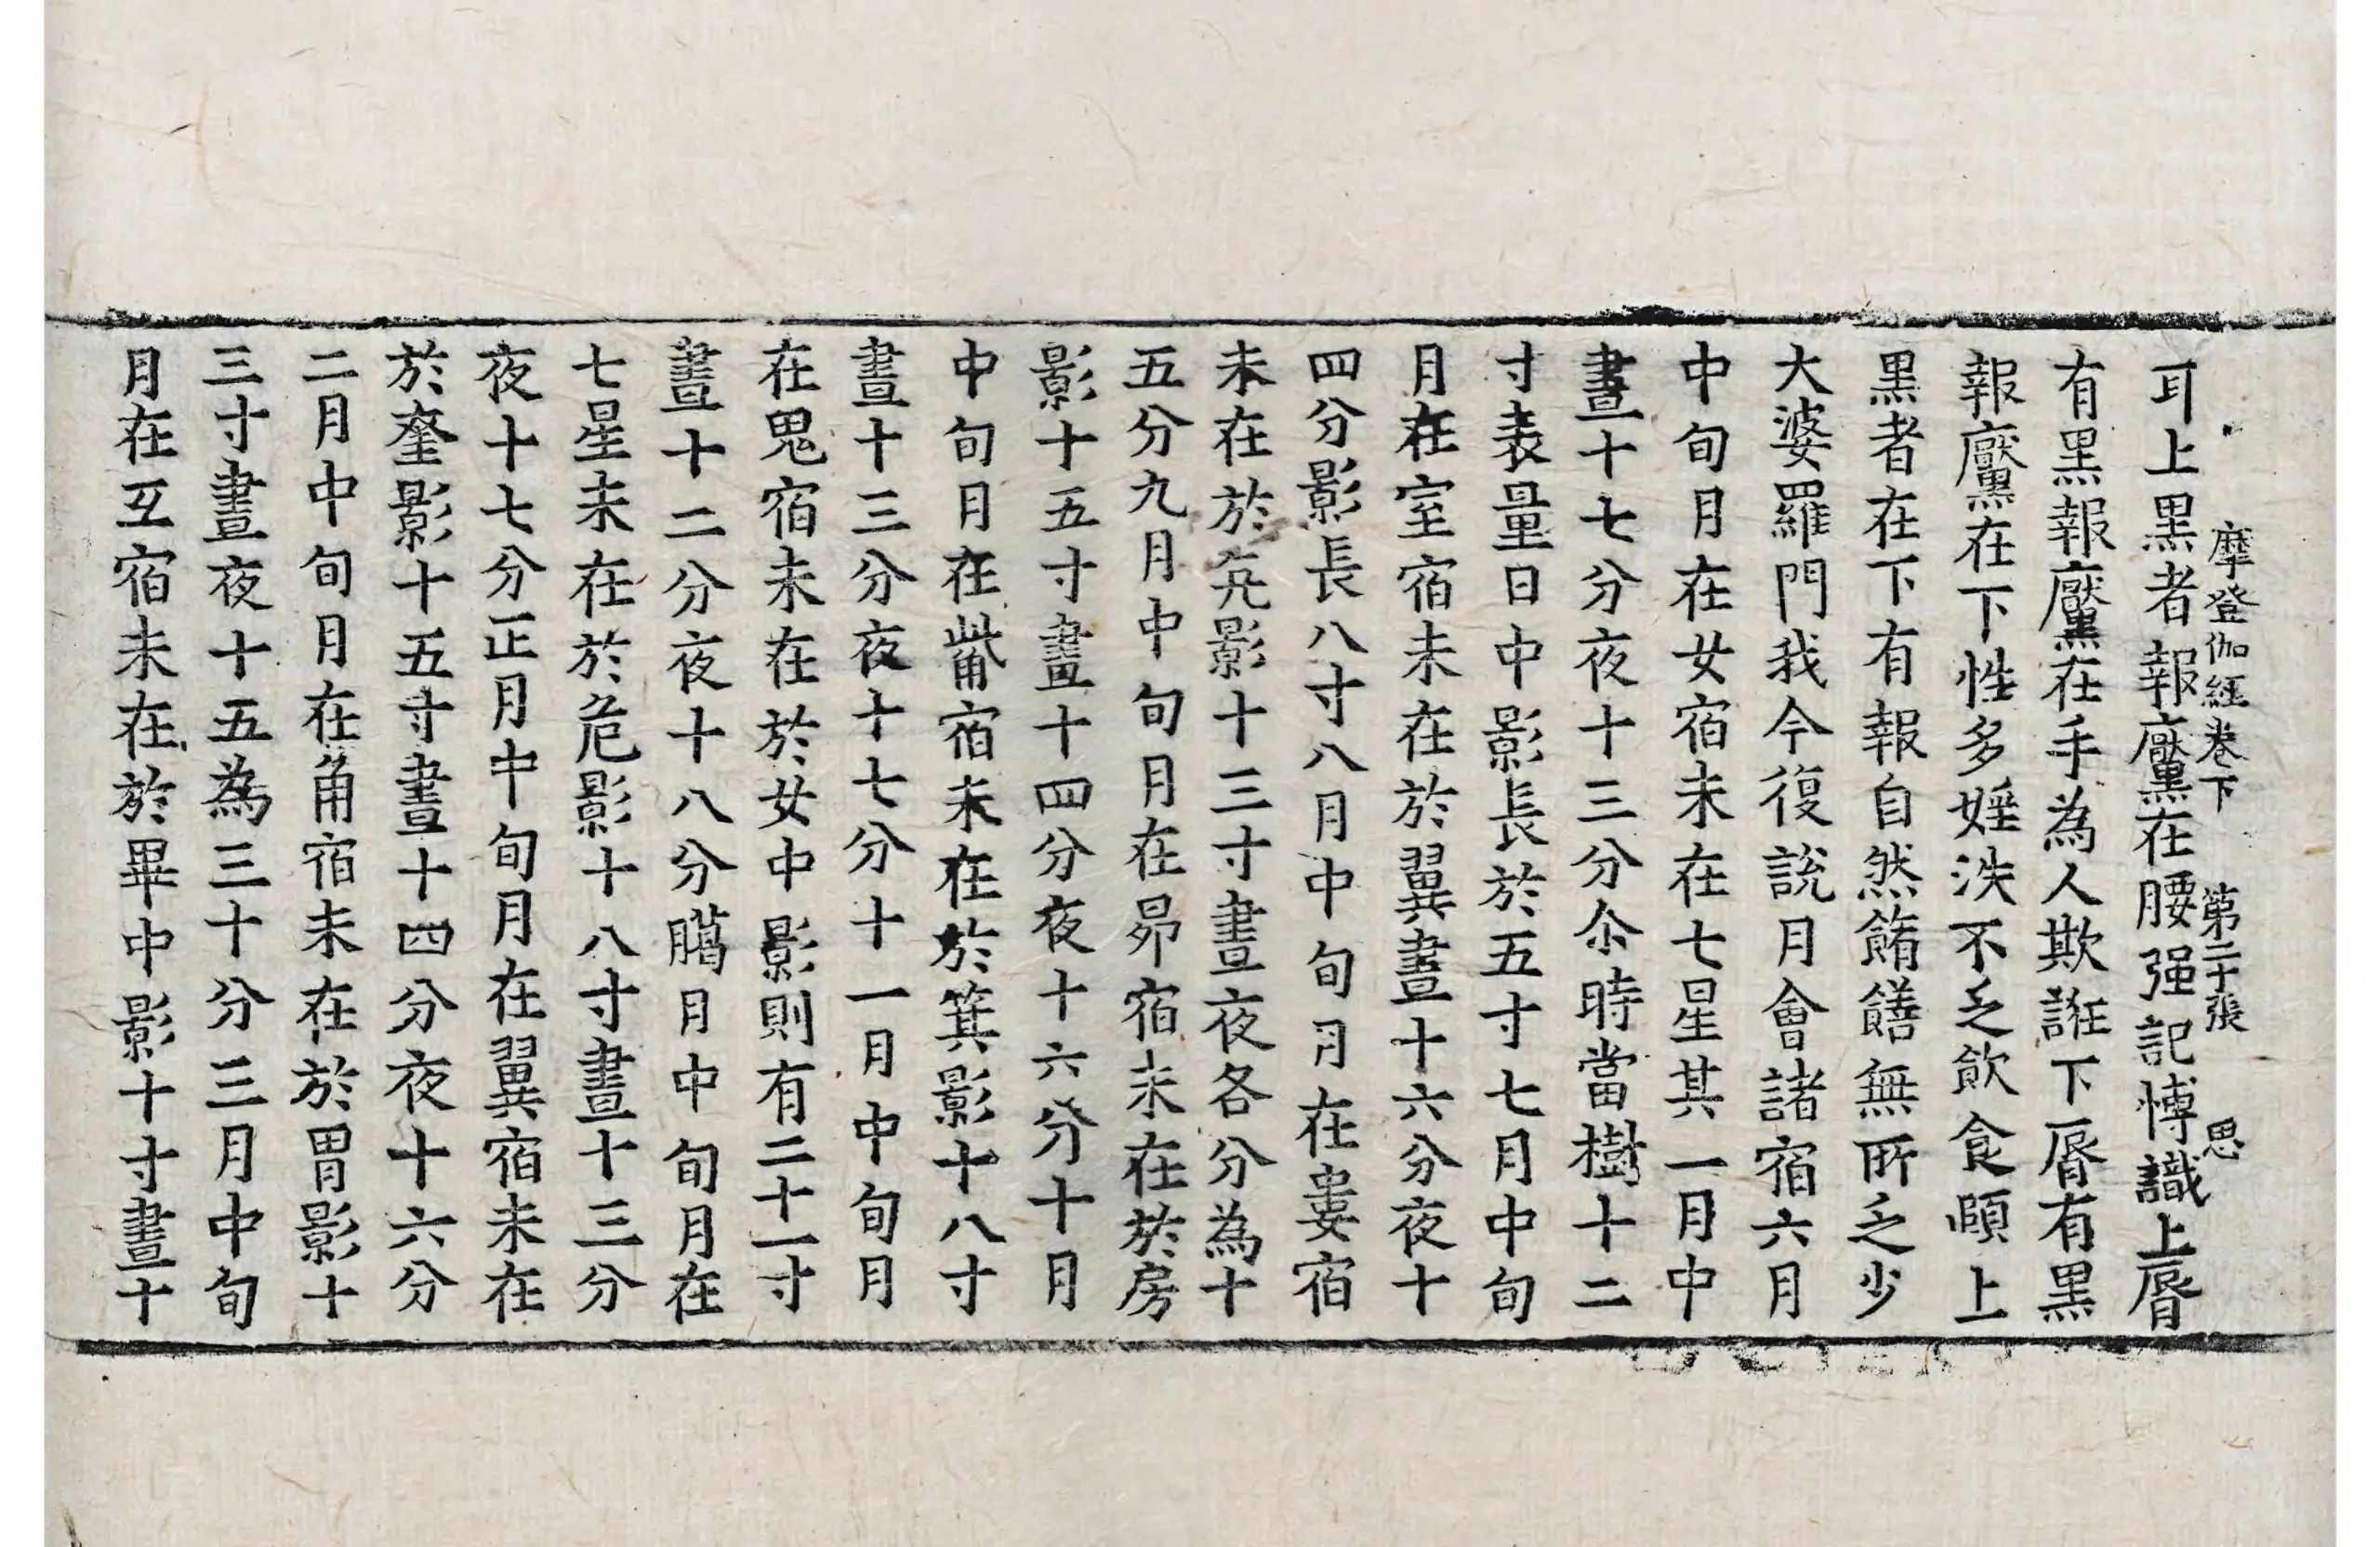 摩登伽經卷下　第二十張　思
耳上黑者報黶在腰强記博識上脣
有黑報黶在手為人欺誑下脣有黑
報黶在下性多婬泆不乏飲食頤上
黒者在下有報自然餚饍無所乏少
大婆羅門我今復説月會諸宿六月
中旬月在女宿未在七星其一月中
晝十七分夜十三分尒時當樹十二
寸表量日中影長於五寸七月中旬
月在室宿未在於翼晝十六分夜十
四分影長八寸八月中旬月在婁宿
未在於亢影十三寸晝夜各分為十
五分九月中旬月在昴宿未在於房
影十五寸晝十四分夜十六分十月
中旬月在觜宿未在於箕影十八寸
晝十三分夜十七分十一月中旬月
在鬼宿未在於女中影則有二十一寸
晝十二分夜十八分臈月中旬月在
七星未在於危影十八寸晝十三分
夜十七分正月中旬月在翼宿未在
於奎影十五寸晝十四分夜十六分
二月中旬月在角宿未在於胃影十
三寸晝夜十五為三十分三月中旬
月在互宿未在於畢中影十寸晝十